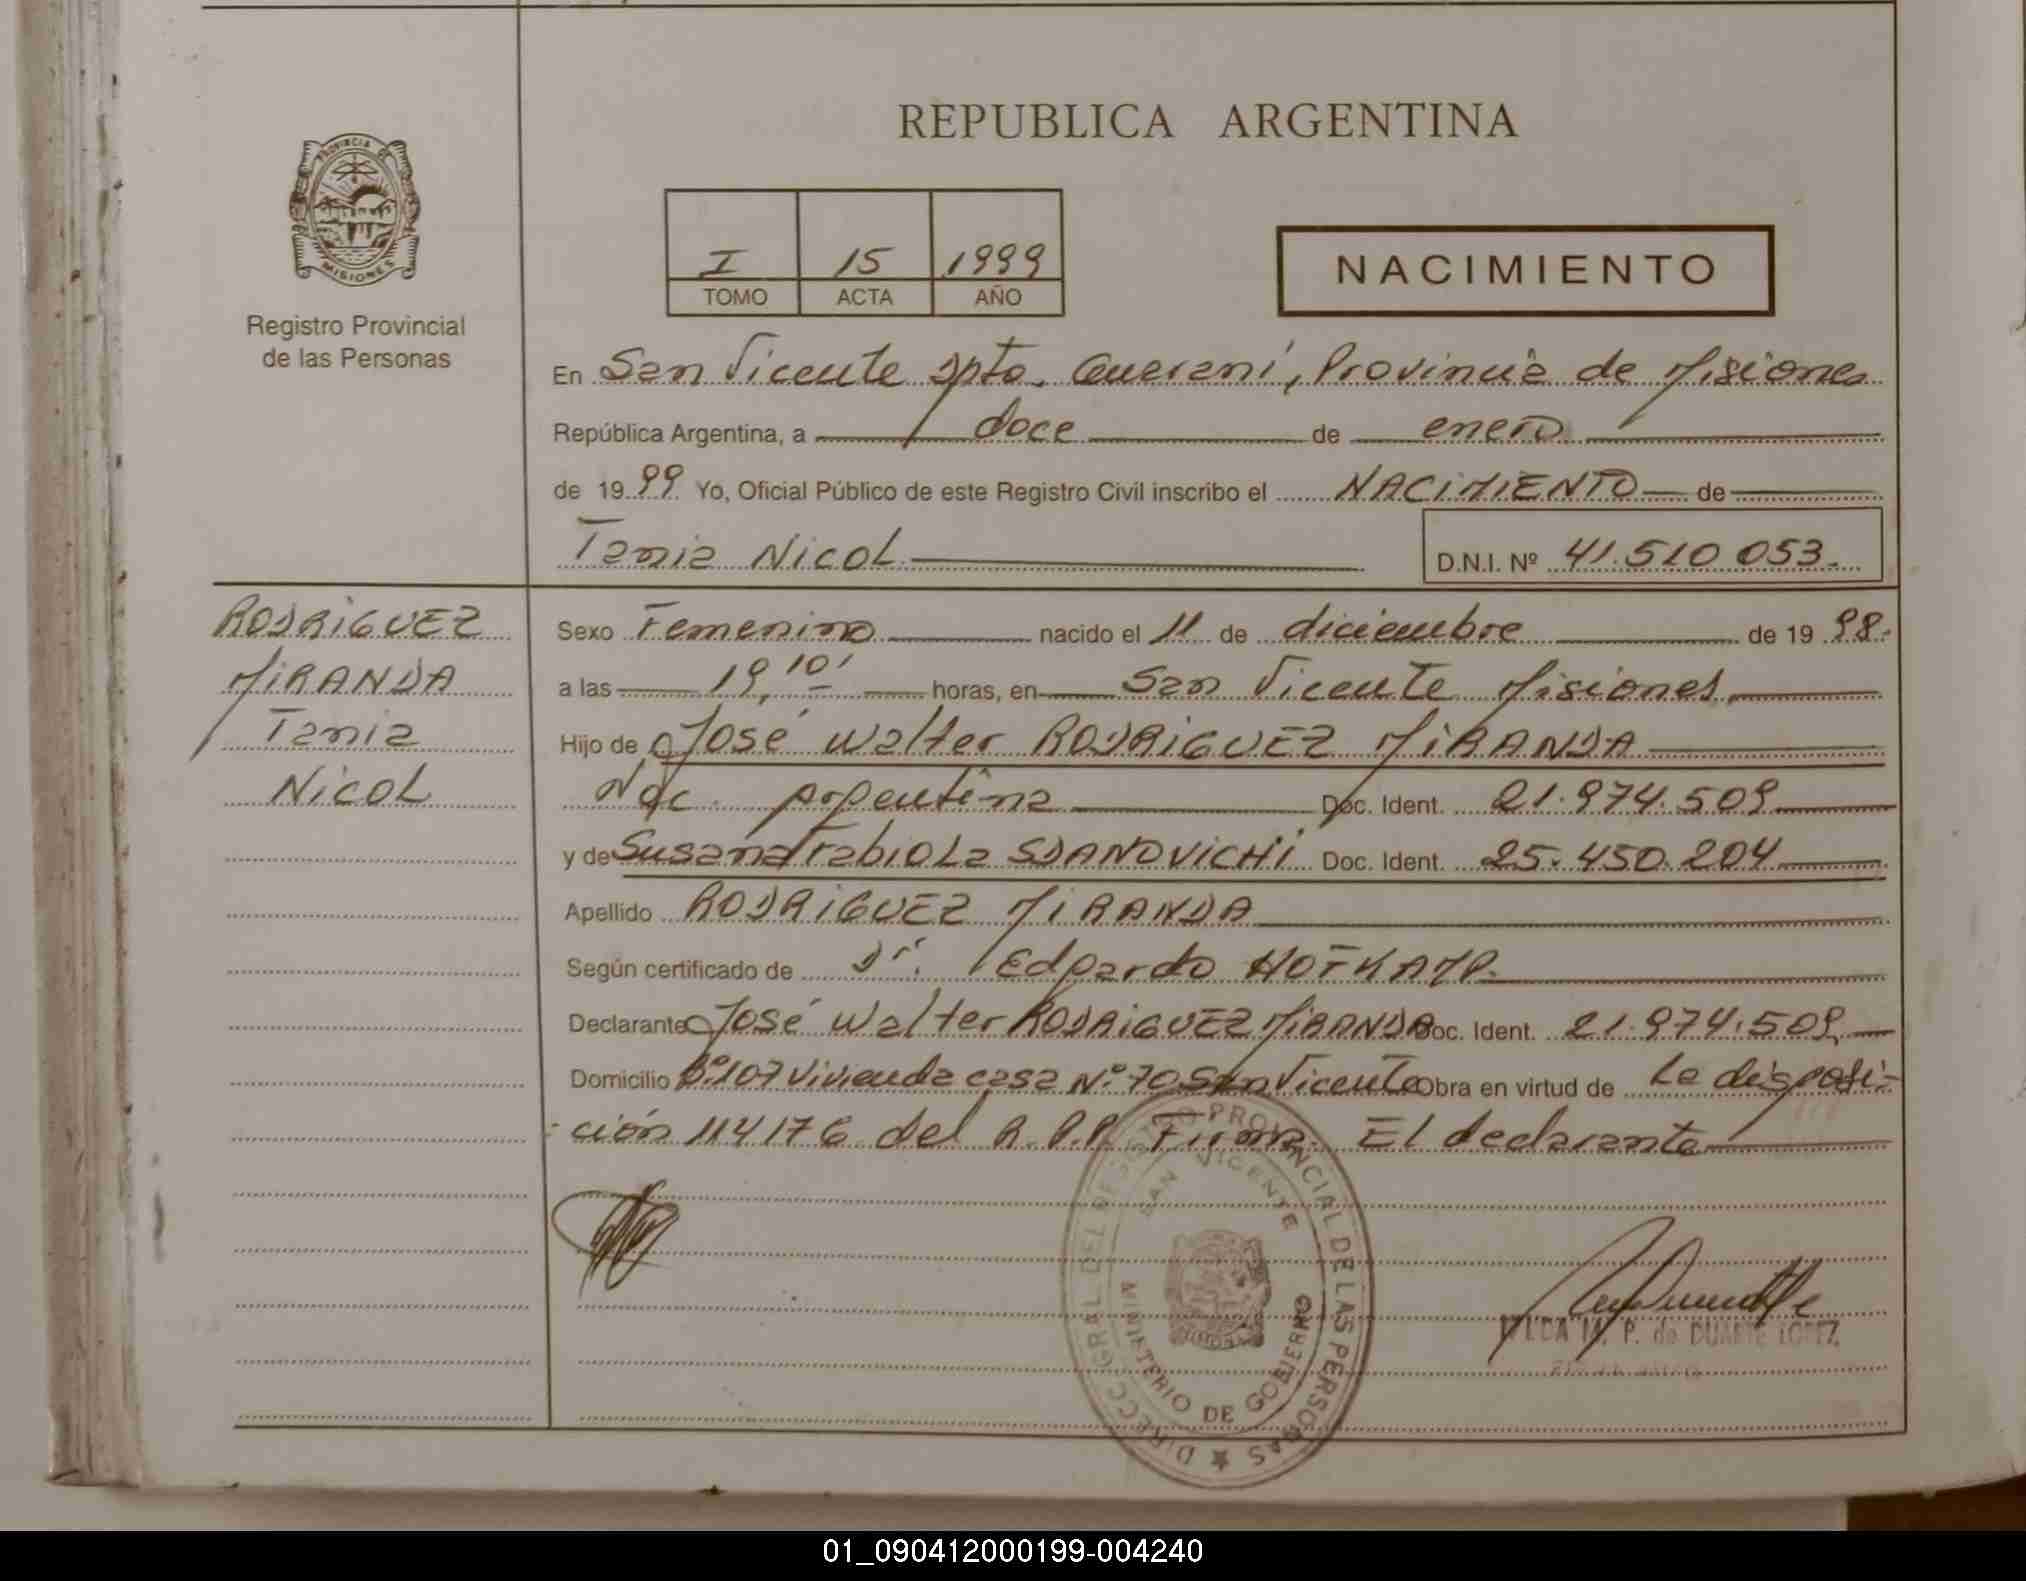 REPUBLICA ARGENTINA
PROVINCIA DE
MISIONES
Registro Provincial
de las Personas
I 15 1999
TOMO ACTA AÑO
NACIMIENTO
En San Vicente Dpto. Guaraní, Provincia de Misiones
República Argentina, a doce de enero
de 1999 Yo, Oficial Público de este Registro Civil inscribo el NACIMIENTO de
Tania Nicol D.N.I. Nº 41.510.053.
RODRIGUEZ
MIRANDA
Tania
Nicol
Sexo Femenino nacido el 11 de diciembre de 1998.
a las 19,10' horas, en San Vicente Misiones,
Hijo de José Walter RODRIGUEZ MIRANDA
Nac. Argentina Doc. Ident. 21.974.509
y de Susana Fabiola SDANOVICHI Doc. Ident. 25.450.204
Apellido RODRIGUEZ MIRANDA
Según certificado de Dr. Edgardo HOFKAMP.
Declarante José Walter RODRIGUEZ MIRANDA Doc. Ident. 21.974.509
Domicilio Bº 107 Vivienda casa Nº 70 San Vicente Obra en virtud de La disposi-
ción 114176 del R.P.P. Firma: El declarante
DIRECC. GRAL. DEL REGISTRO PROVINCIAL DE LAS PERSONAS
SAN VICENTE
MINISTERIO DE GOBIERNO
M. P. de DUARTE LOPEZ
01_090412000199-004240